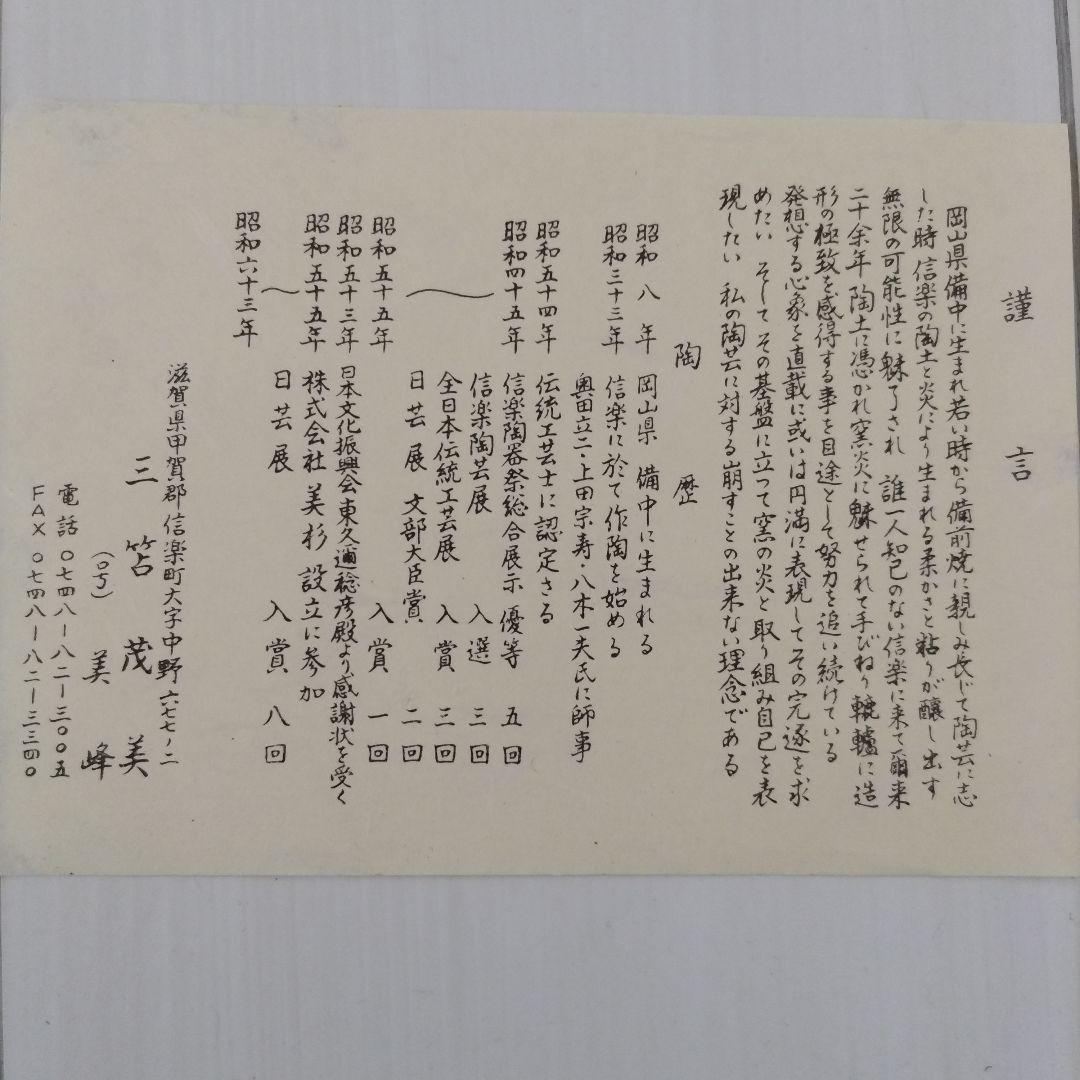 謹言
岡山県備中に生まれ若い時から備前焼に親しみ長じて陶芸に志
した時 信楽の陶土と炎により生まれる柔かさと粘りが醸し出す
無限の可能性に魅了され 誰一人知己のない信楽に来て爾来
二十余年 陶土に憑かれ窯炎に魅せられて手びねり轆轤に造
形の極致を感得する事を目途として努力を追い続けている
発想する心象を直載に或いは円満に表現してその完遂を求
めたい そして その基盤に立つて窯の炎と取り組み自己を表
現したい 私の陶芸に対する崩すことの出来ない理念である
陶歴
昭和 八 年 岡山県 備中に生まれる
昭和三十三年 信楽に於て作陶を始める
奥田立二・上田宗寿・八木一夫氏に師事
昭和五十四年 伝統工芸士に認定さる
昭和四十五年 信楽陶器祭総合展示 優等 五回
〜 信楽陶芸展 入選 三回
全日本伝統工芸展 入賞 三回
日芸展 文部大臣賞 二回
昭和五十五年 入賞 一回
昭和五十三年 日本文化振興会東久邇稔彦殿より感謝状を受く
昭和五十五年 株式会社 美杉 設立に参加
〜 日芸展 入賞 八回
昭和六十三年
滋賀県甲賀郡信楽町大字中野六七七ノ二
三筈茂美
(の寸) 美峰
電話 〇七四八ー八二ー三〇〇五
FAX 〇七四八ー八二ー三三四〇